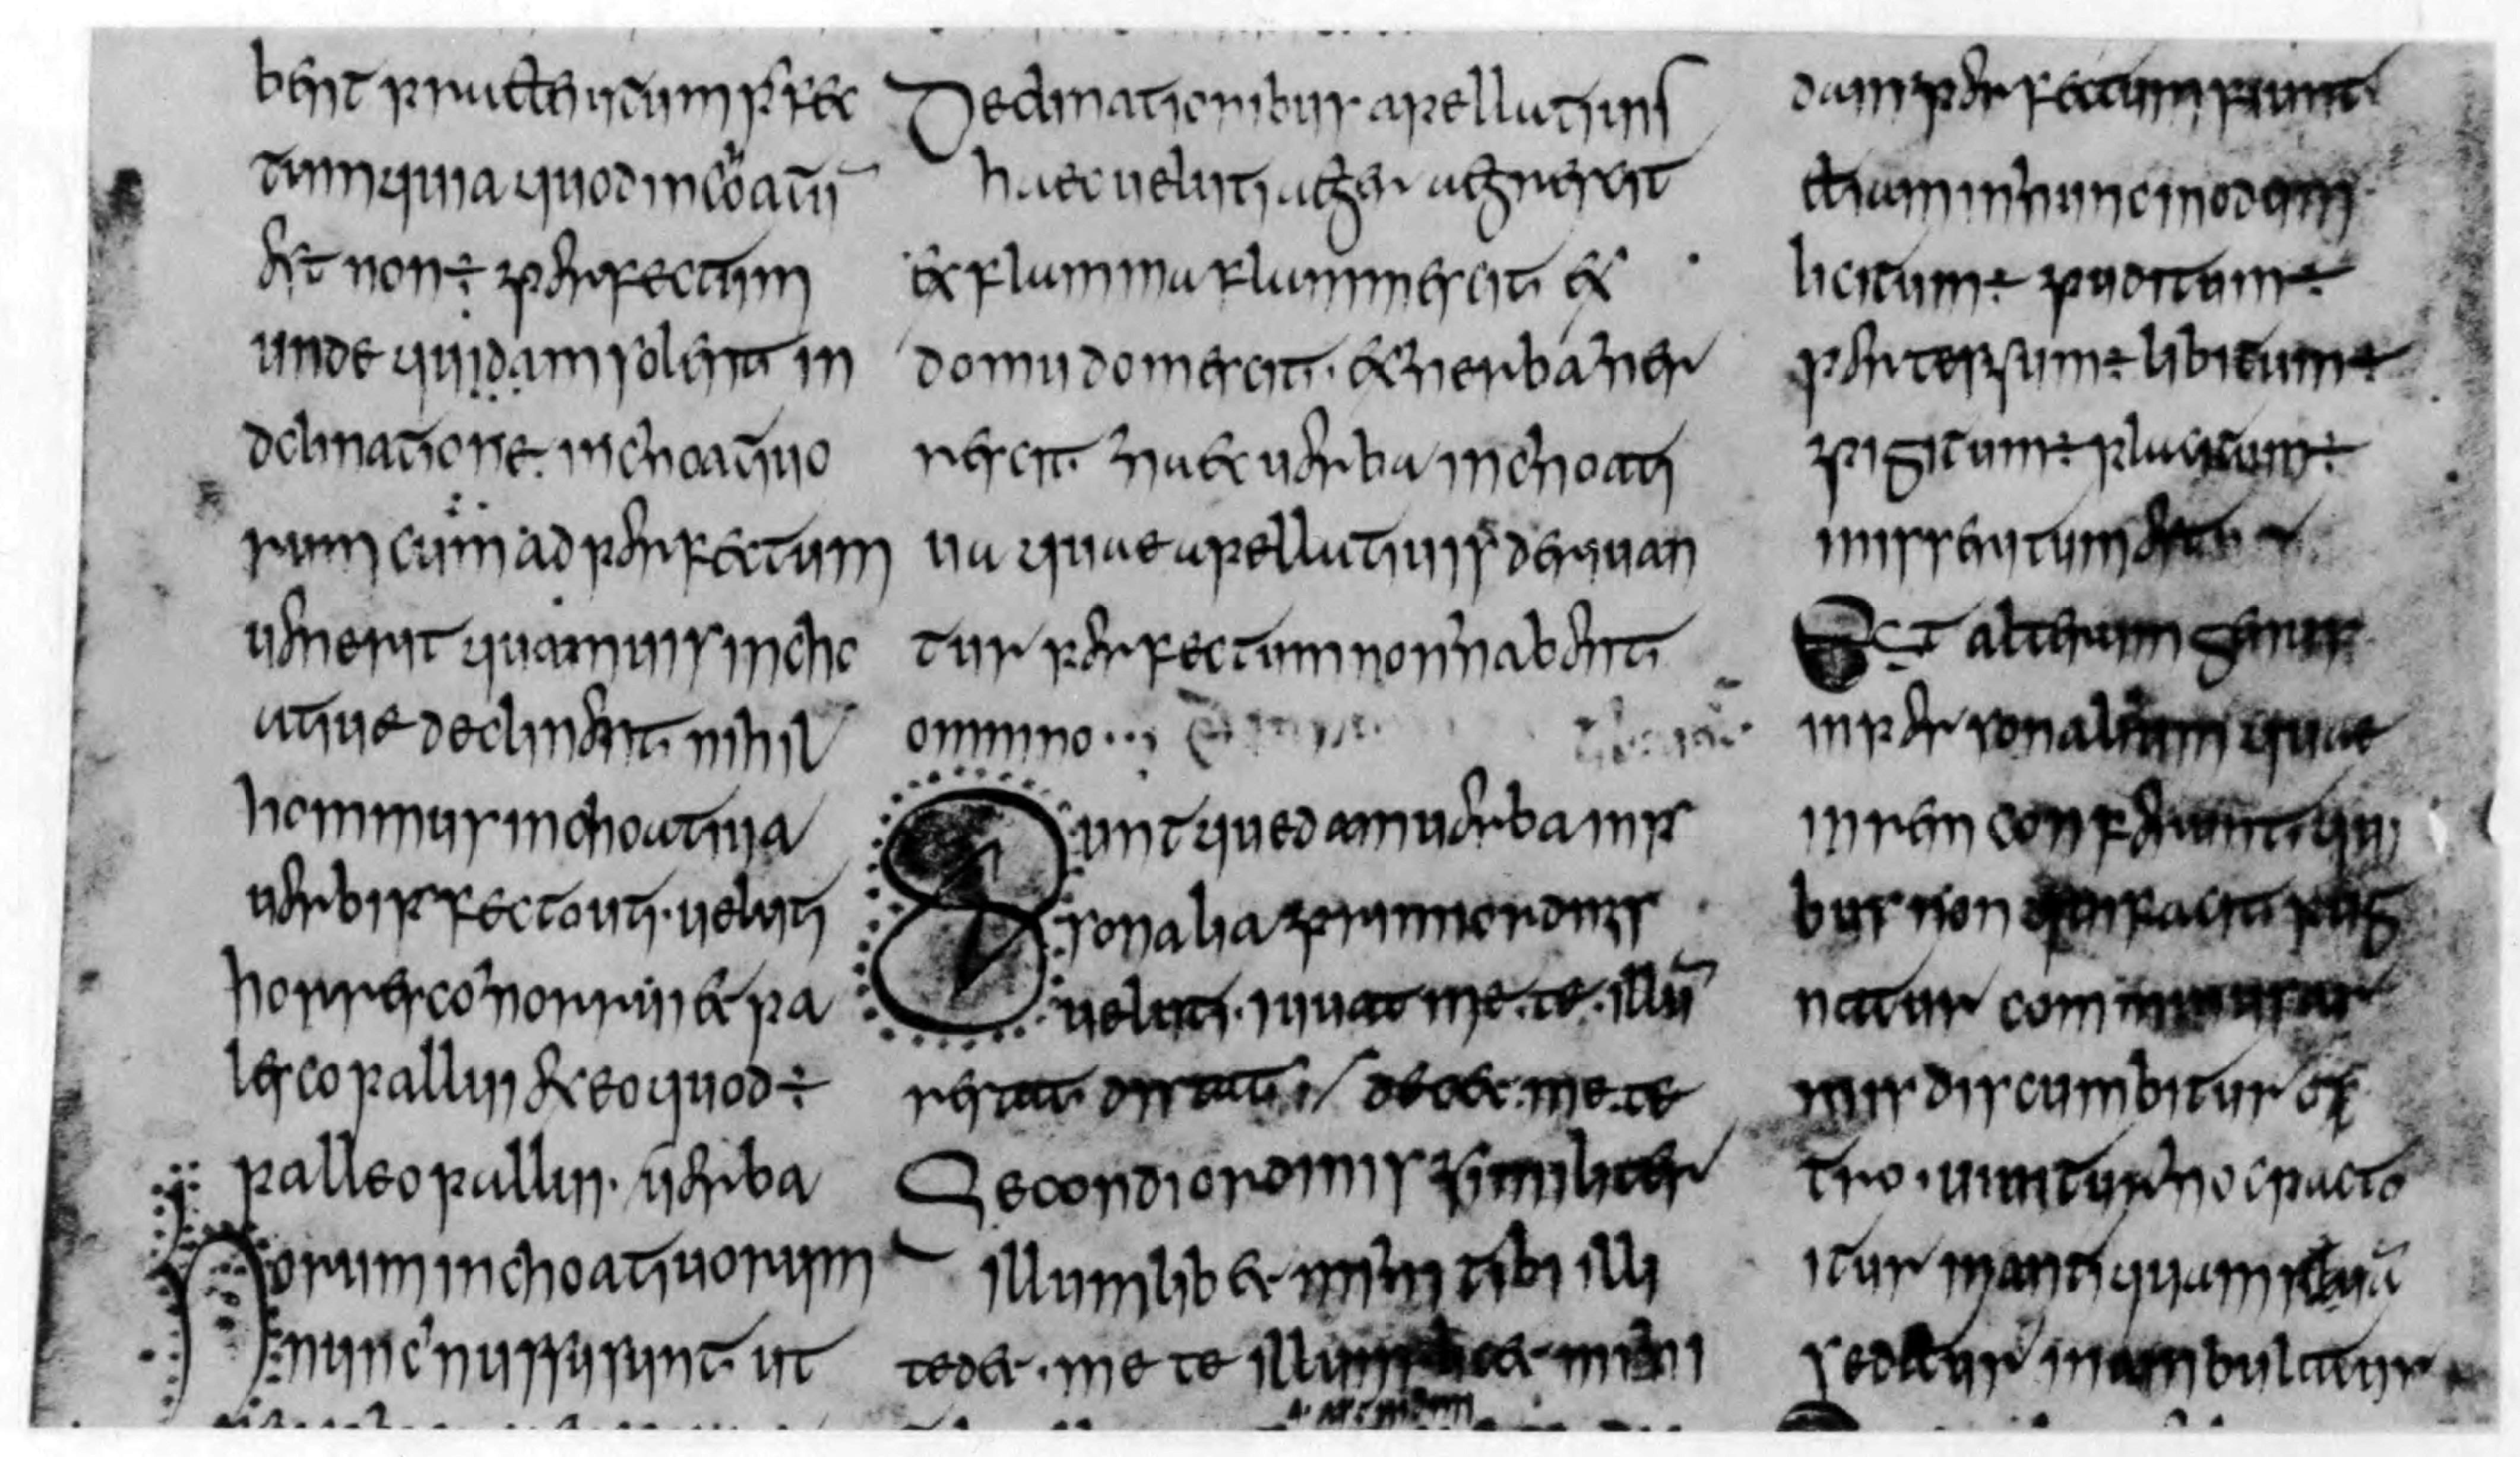 bent praeteritum perfec
tum quia quod inchoatiu
est non ÷ perfectum
unde quidam solent in
declinatione inchoatiuo
rum cum ad perfectum
uenerint quamuis incho
atiue declinent nihil
hominus inchoatiua
uerbis perfecto uti. ueluti
horresco horrui et pa
lesco pallui et eo quod ÷
palleo pallui. uerba
horum inchoatiuorum
nunc nussu sunt ut
Declinationibus apellatiuis
haec ueluti ager agrescit
ex flamma flammescit ex
domu domescit. ex herba her
rescit haec uerba inchoati
ua quae apellatiuis dequan
tur perfectum non habent
omnino
Sunt quedam uerba inper
sonalia primi ordinis
ueluti. iuuat me. te. illū
restat distat decet. me. te
Secondi ordinis similiter
illum libet mihi tibi illi
tedet. me te illum licet mihi
dam perfectum sunt
etiam in hunc modum
licitum ÷ puditum ÷
pertersum ÷ libitum ÷
pigitum ÷ placitum ÷
missertum est
Est alterum genus
inpersonalium quae
in rem conferunt qui
bus non facit pug
natur comminus
nus discumbitur ex
tro. uiuitur hoc pacto
itur in antiquam siluā
sedetur inambulatur